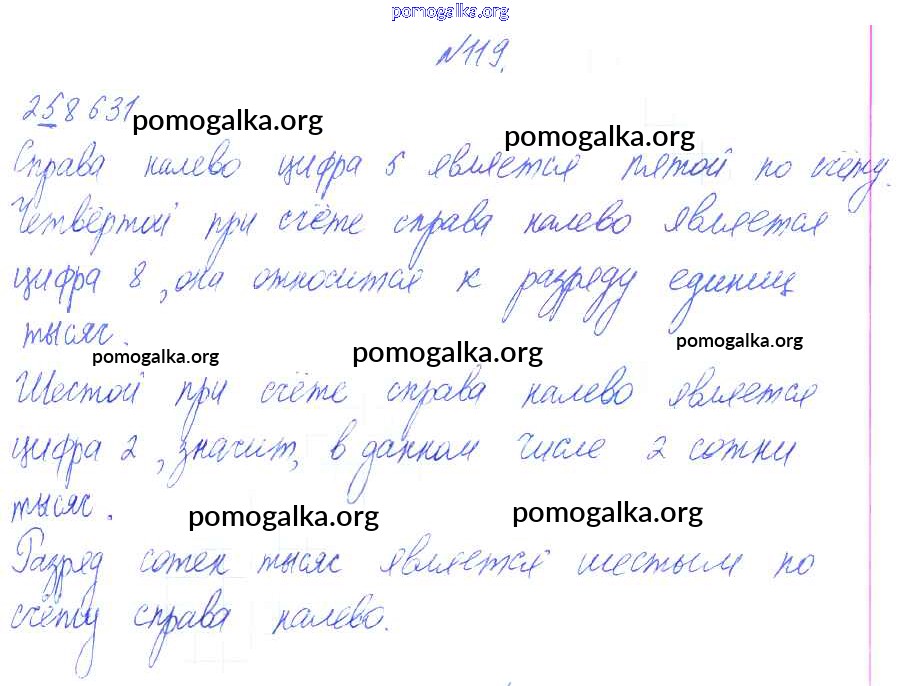 pomogalka.org
№119.
258 631
pomogalka.org
pomogalka.org
Справа налево цифра 5 является пятой по счёту.
Четвёртой при счёте справа налево является
цифра 8, она относится к разряду единиц
тысяч.
pomogalka.org
pomogalka.org
pomogalka.org
Шестой при счёте справа налево является
цифра 2, значит, в данном числе 2 сотни
тысяч.
pomogalka.org
pomogalka.org
Разряд сотен тысяч является шестым по
счёту справа налево.